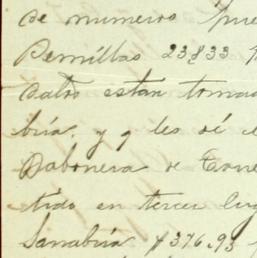 de numeros pue
Semillas 23833
datos están tomad
bria. y q les dé e
Jabonera de Torre
tido en tercer lug
Sanabria $376.93